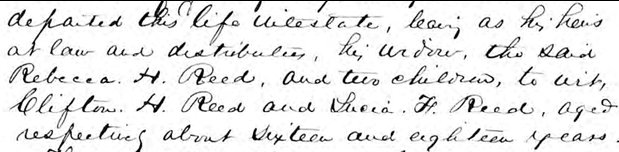 departed this life intestate, leaving as his heirs
at law and distributees, his widow, the said
Rebecca. H. Reed, and two children, to wit,
Clifton. H. Reed and Lucia. F. Reed, aged
respecting about sixteen and eighteen years.